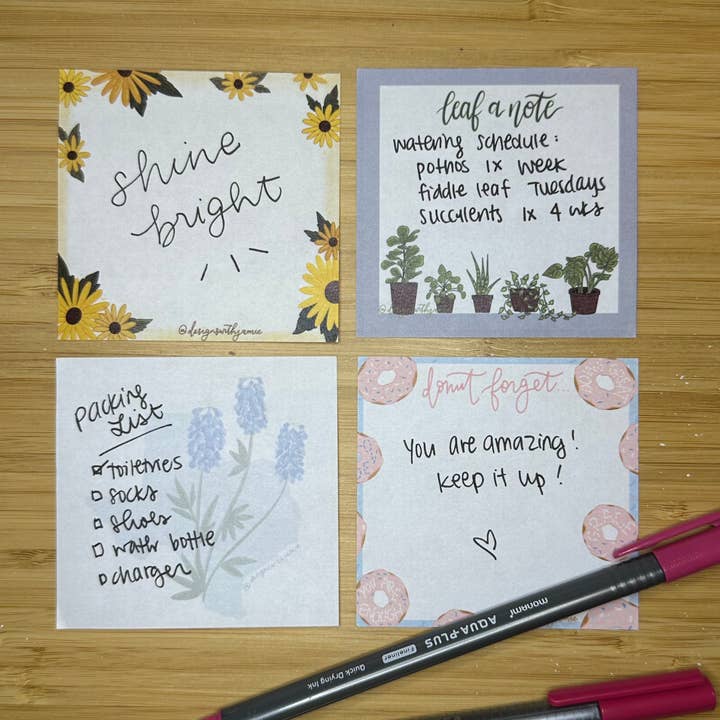 shine
bright
@designswithjamie
leaf a note
watering schedule:
pothos 1x week
fiddle leaf Tuesdays
succulents 1x 4 wks
Packing
List
toiletries
socks
shoes
water bottle
charger
donut forget...
You are amazing!
keep it up!
monami AQUA-PLUS Fineliner Quick Drying Ink